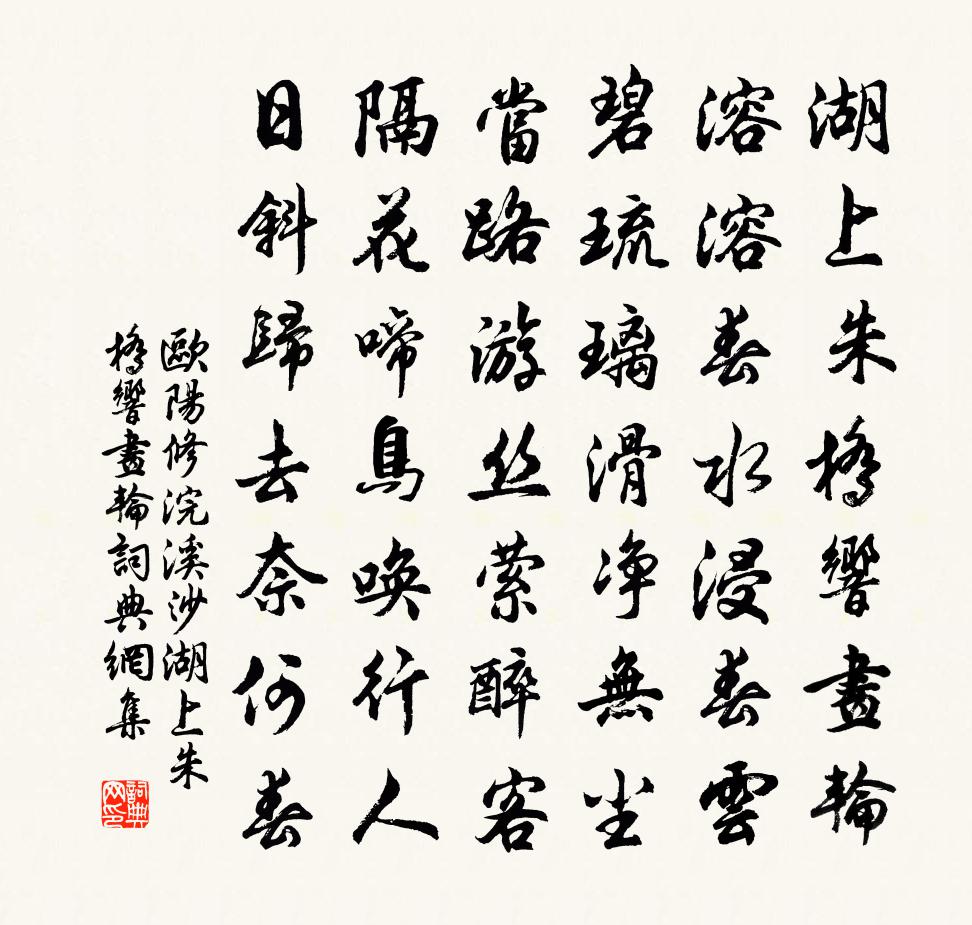 湖上朱橋響畫輪
溶溶春水浸春雲
碧琉璃滑淨無尘
當路游丝萦醉客
隔花啼鳥喚行人
日斜歸去奈何春
歐陽修浣溪沙湖上朱
橋響畫輪詞典網集
詞典
网印